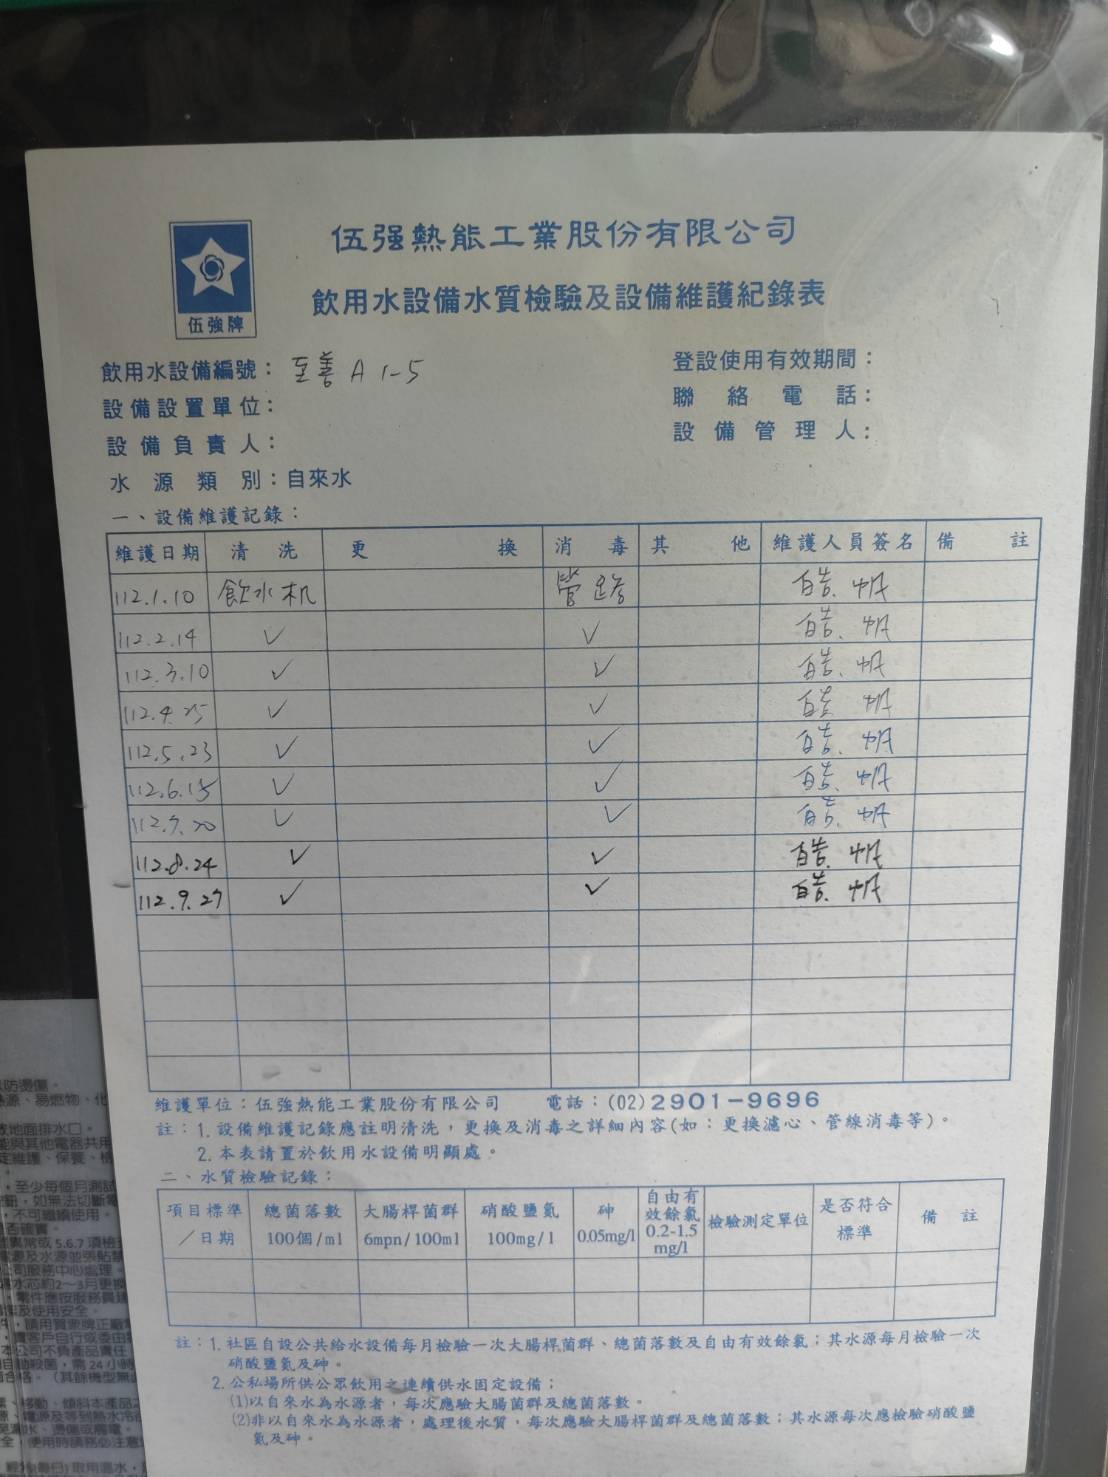 伍强熱能工業股份有限公司
飲用水設備水質檢驗及設備維護紀錄表
伍強牌
飲用水設備編號：至善 A 1-5
登設使用有效期間：
設備設置單位：
聯絡電話：
設備負責人：
設備管理人：
水源類別：自來水
一、設備維護記錄：
維護日期 清洗 更換 消毒 其他 維護人員簽名 備註
112.1.10 飲水机 管路 皓.帆
112.2.14 ✓ ✓ 皓.帆
112.3.10 ✓ ✓ 皓.帆
112.4.25 ✓ ✓ 皓.帆
112.5.23 ✓ ✓ 皓.帆
112.6.15 ✓ ✓ 皓.帆
112.7.20 ✓ ✓ 皓.帆
112.8.24 ✓ ✓ 皓.帆
112.9.27 ✓ ✓ 皓.帆
維護單位：伍強熱能工業股份有限公司 電話：(02)2901-9696
註：1.設備維護記錄應註明清洗，更換及消毒之詳細內容(如：更換濾心、管線消毒等)。
2.本表請置於飲用水設備明顯處。
二、水質檢驗記錄：
項目標準／日期 總菌落數 100個/ml 大腸桿菌群 6mpn/100ml 硝酸鹽氮 100mg/l 砷 0.05mg/l 自由有效餘氯 0.2-1.5 mg/l 檢驗測定單位 是否符合標準 備註
註：1.社區自設公共給水設備每月檢驗一次大腸桿菌群、總菌落數及自由有效餘氯；其水源每月檢驗一次
硝酸鹽氮及砷。
2.公私場所供公眾飲用之連續供水固定設備；
(1)以自來水為水源者，每次應驗大腸菌群及總菌落數。
(2)非以自來水為水源者，處理後水質，每次應驗大腸桿菌群及總菌落數；其水源每次應檢驗硝酸鹽
氮及砷。
以防燙傷。
熱源、易燃物、化
或地面排水口。
能與其他電器共用
定維護、保養、檢
，至少每個月測試
，如無法切斷電
，不可繼續使用。